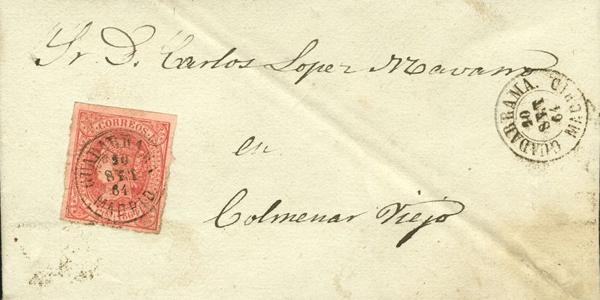 Sr D. Carlos Lopez Navarro
en
Colmenar Viejo
CORREOS
GUADARRAMA
20
SET
64
MADRID
GUADARRAMA.
20
SET
64
MADRID